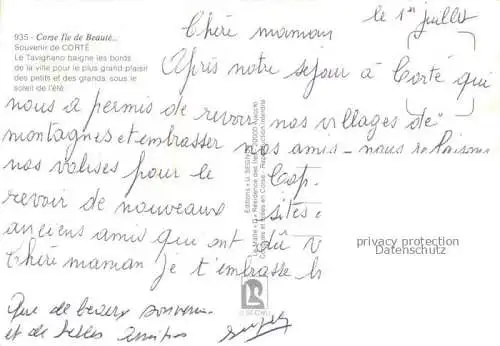 935 - Corse Ile de Beauté...
Souvenir de CORTÉ
Le Tavignano baigne les bords
de la ville pour le plus grand plaisir
des petits et des grands, sous le
soleil de l'été.
le 1er juillet
Chère maman
Après notre séjour à Corté qui
nous a permis de revoir nos villages de
montagnes et embrasser nos amis - nous
nos valises pour le Cap.
revoir de nouveaux sites
anciens amis qui ont dû
Chère maman je t'embrasse
Que de beaux
et de belles
privacy protection
Datenschutz